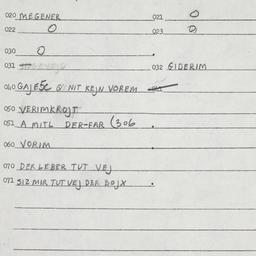 020 MEGENER 021 0
022 0 023 0
030 0
031 032 GIDERIM
040 GAJESC NIT KEJN VOREM
050 VERIMKROJT
051 A MITL DER-FAR (306
060 VORIM
070 DER LEBER TUT VEJ
071 SIZ MIR TUT VEJ DER BOJX